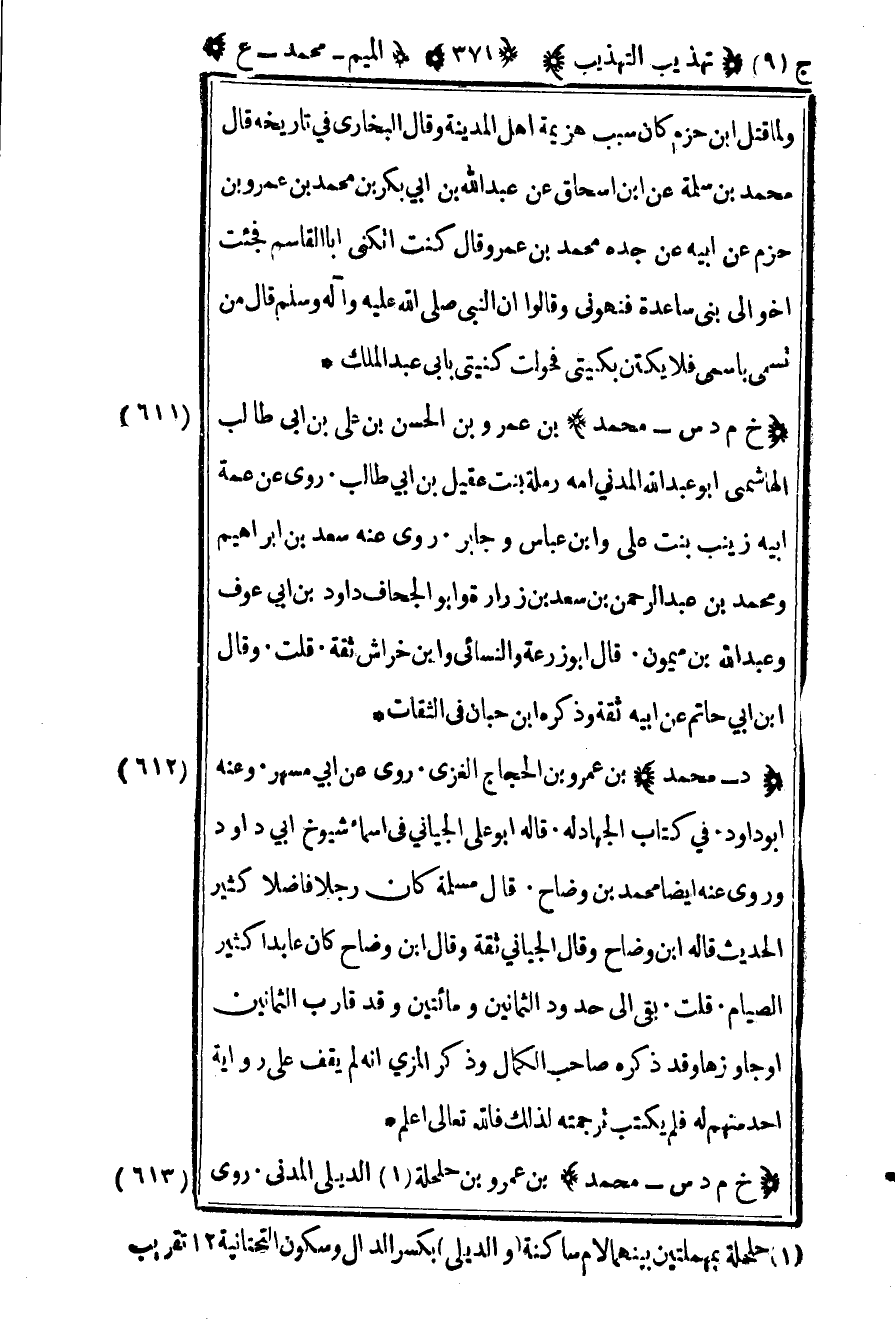 ج (٩) ﴿ تهذيب التهذيب ﴾ ﴿ ٣٧١ ﴾ ﴿ الميم - محمد - ع ﴾
ولما قتل ابن حزم كان سبب هزيمة اهل المدينة وقال البخارى في تاريخه قال
محمد بن سلمة عن ابن اسحاق عن عبدالله بن ابي بكر بن محمد بن عمرو بن
حزم عن ابيه عن جده محمد بن عمرو قال كنت اتكنى ابا القاسم فجئت
اخوالى بنى ساعدة فنهونى وقالوا ان النبى صلى الله عليه وآله وسلم قال من
تسمى باسمى فلا يكتن بكنيتى فحولت كنيتى بابى عبد الملك *
﴿ خ م د س - محمد ﴾ بن عمرو بن الحسن بن على بن ابى طالب (٦١١)
الهاشمى ابو عبدالله المدني امه رملة بنت عقيل بن ابي طالب · روى عن عمة
ابيه زينب بنت على وابن عباس و جابر · روى عنه سعد بن ابراهيم
ومحمد بن عبدالرحمن بن سعد بن زرارة وابو الجحاف داود بن ابي عوف
وعبدالله بن ميمون · قال ابو زرعة والنسائى وابن خراش ثقة · قلت · وقال
ابن ابي حاتم عن ابيه ثقة وذكره ابن حبان فى الثقات *
﴿ د - محمد ﴾ بن عمرو بن الحجاج الغزى · روى عن ابي مسهر · وعنه (٦١٢)
ابوداود · في كتاب الجهاد له · قاله ابو على الجياني فى اسماء شيوخ ابي داود
وروى عنه ايضا محمد بن وضاح · قال مسلمة كان رجلا فاضلا كثير
الحديث قاله ابن وضاح وقال الجياني ثقة وقال ابن وضاح كان عابدا كثير
الصيام · قلت · بقى الى حدود الثمانين و مائتين و قد قارب الثمانين
اوجاوزها وقد ذكره صاحب الكمال وذكر المزي انه لم يقف على رواية
احد منهم له فلم يكتب ترجمته لذلك فالله تعالى اعلم *
﴿ خ م د س - محمد ﴾ بن عمرو بن حلحلة (١) الديلى المدنى · روى (٦١٣)
(١) حلحلة بمهملتين بينهما لام ساكنة (و الديلى) بكسر الدال وسكون التحتانية ١٢ تقريب